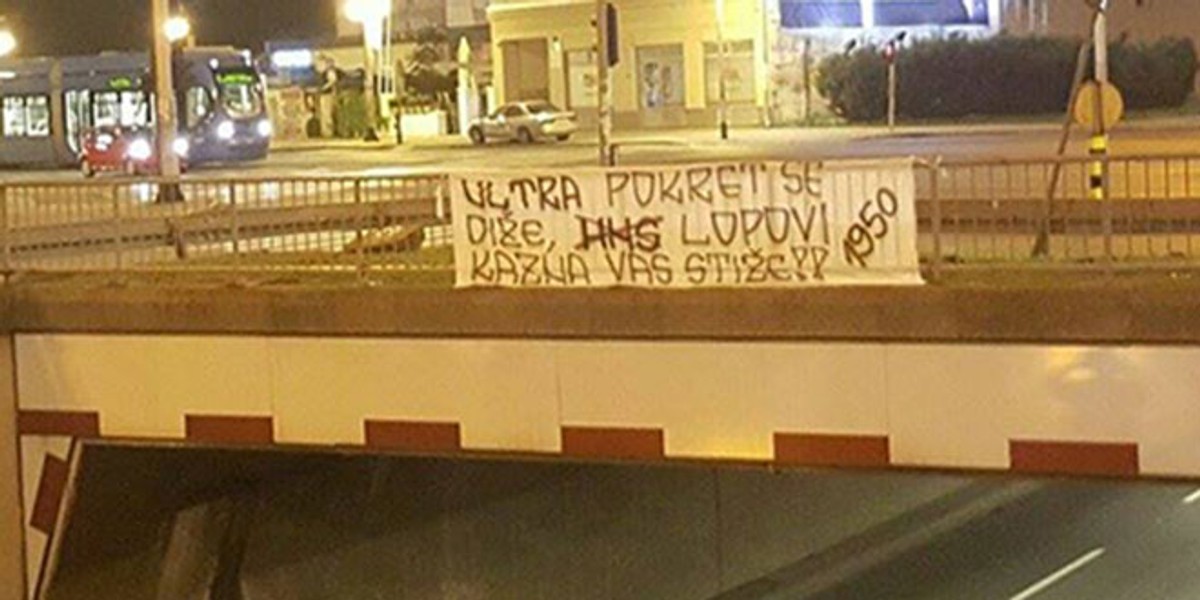 ULTRA POKRET SE
DIŽE, HNS LOPOVI
KAZNA VAS STIŽE!!
1950